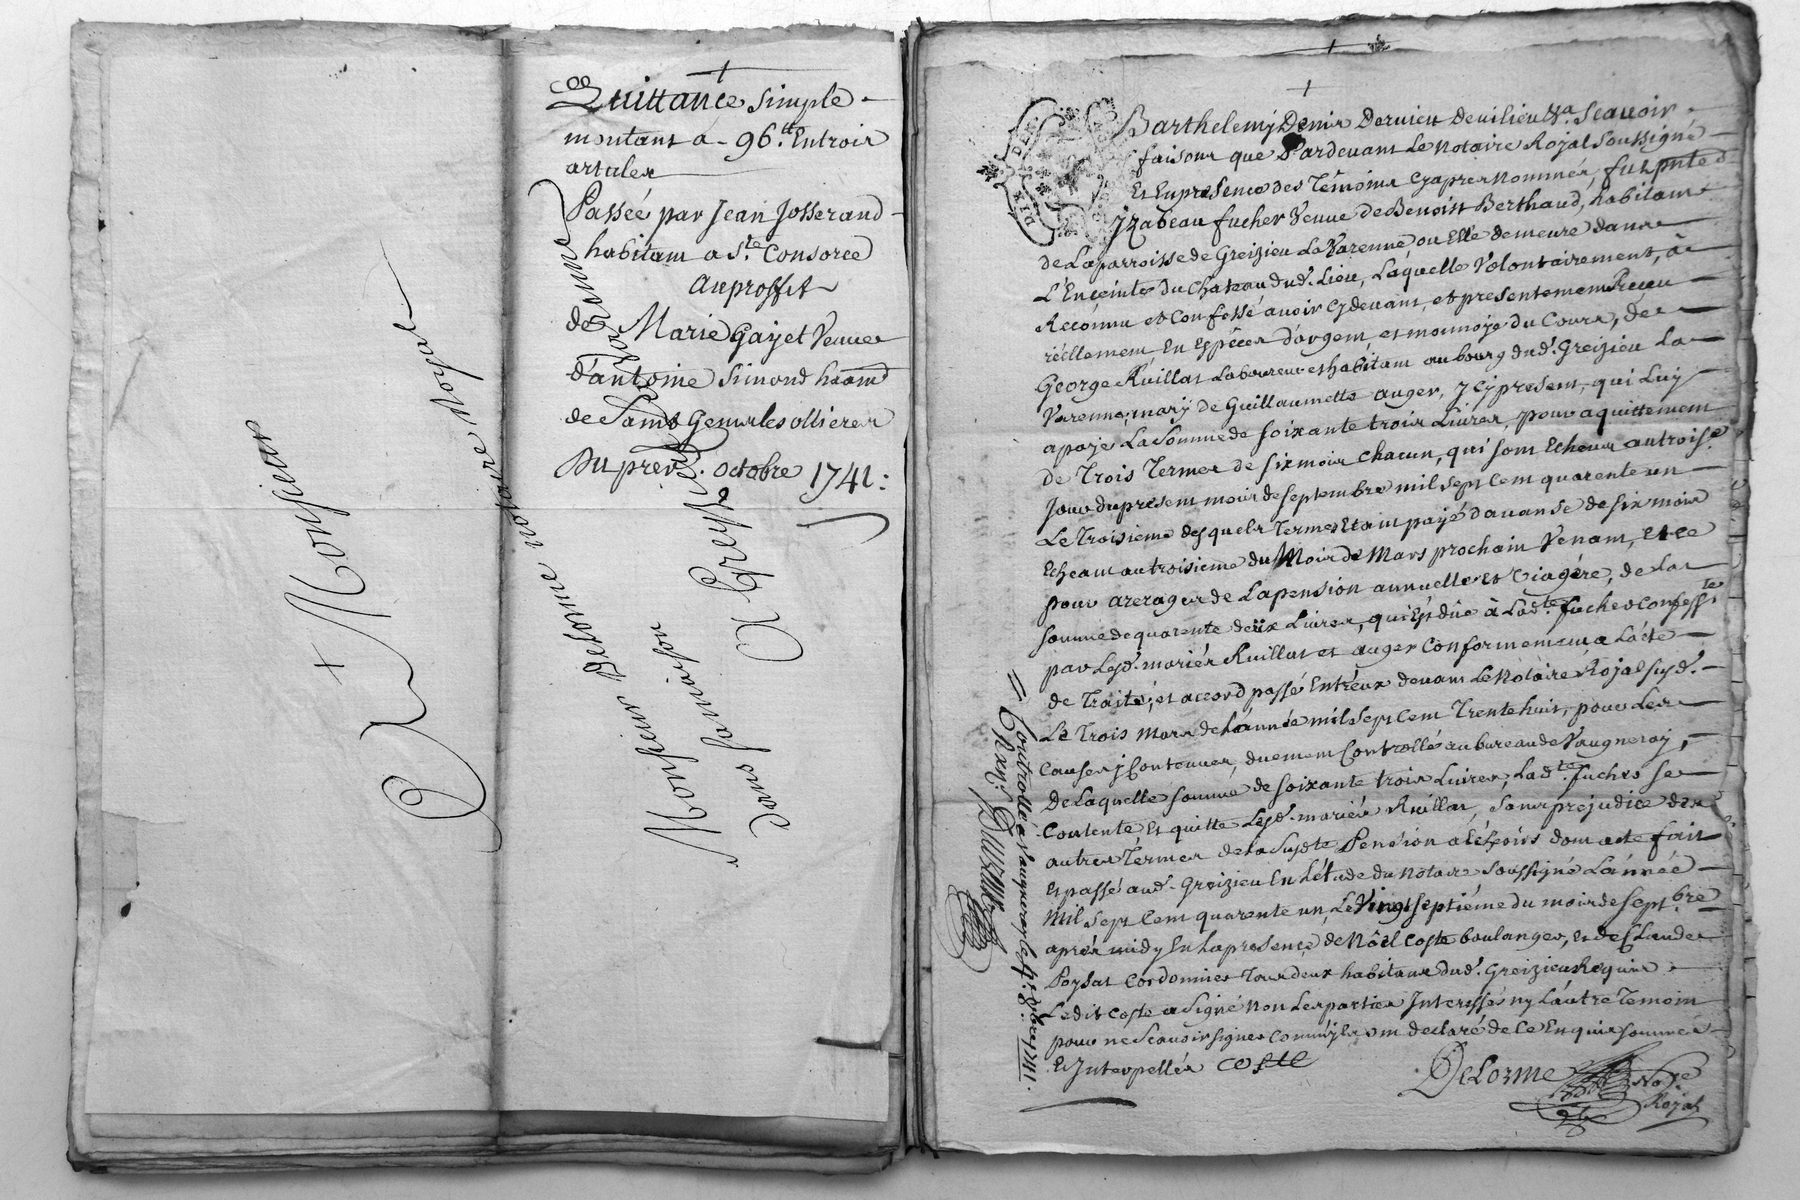 Quittance simple
montant a 96.tt Entrois
articles
Passée par Jean Josserand
habitant a St.e Consorce
au proffit
de Marie Gayet Veuve
d'antoine Simond habitant
de Saint Genis les ollieres
Du prem.r octobre 1741:
Monsieur
A
Monsieur Delorme notaire Royal
dans sa maison
A Greysieu la Varenne
Sçavoir
faisons que Pardevant Le Notaire Royal Soussigné
Et En presence des Témoins Cy apres Nommés, fut pnte
Izabeau fucher Veuve de Benoist Berthaud, habitante
de La parroisse de Greizieu La Varenne ou Elle demeure dans
L'Enceinte du Chateau dud. Lieu, Laquelle Volontairement, à
Reconnu et Confessé avoir Cy devant, et presentement Reçeu
réellement En Espéces d'argent, et monnoye du Cours, de
George Ruillat Laboureur et habitant au bourg dud. Greizieu La
Varenne, mary de Guillaumette auger, Icy present, qui Luy
a payé La Somme de soixante trois Livres, pour aquittement
de Trois Termes de six mois Chacun, qui sont Echeus au troisie
Jour du present mois de septembre mil sept Cent quarente un
Le Troisieme desquels Termes Etant payé d'avanse de six mois
Echeant au troisieme du Mois de Mars prochain Venant, et ce
pour arerages de La pension annuelle et Viagére, de La
somme de quarente deux Livres, qui Est düe à Lad.te fucher
par Lesd. mariés Ruillat et auger Conformement a L'acte
de Traité, et accord passé Entr'eux devant Le Notaire Royal susd.
Le Trois Mars de L'année mil sept Cent Trente huit, pour Les
Causes y Contenues, duement Controllé au bureau de Vaugneray,
De Laquelle somme de soixante trois Livres, Lad.te fucher se
Contente, Et quitte Lesd. mariés Ruillat, sans prejudice des
autres Termes de La susd.te Pension dont acte fait
Et passé aud. Greizieu En L'étude du Notaire soussigné L'année
Mil sept Cent quarente un, Le Vingt septiéme du mois de septbre
aprés midy En La presence de Nöel Coste boulanger, et de Claude
Poysat Cordonnier Tous deux habitans dud. Greizieu Requis
Ledit Coste a signé Non Les parties Interessés ny L'autre Temoin
pour ne Scavoir signer Comm'ils ont declaré de ce Enquis sommés
Et Interpellés Coste
Delorme No.re
Royal
Controllé a Vaugneray le 4e 8bre 1741.